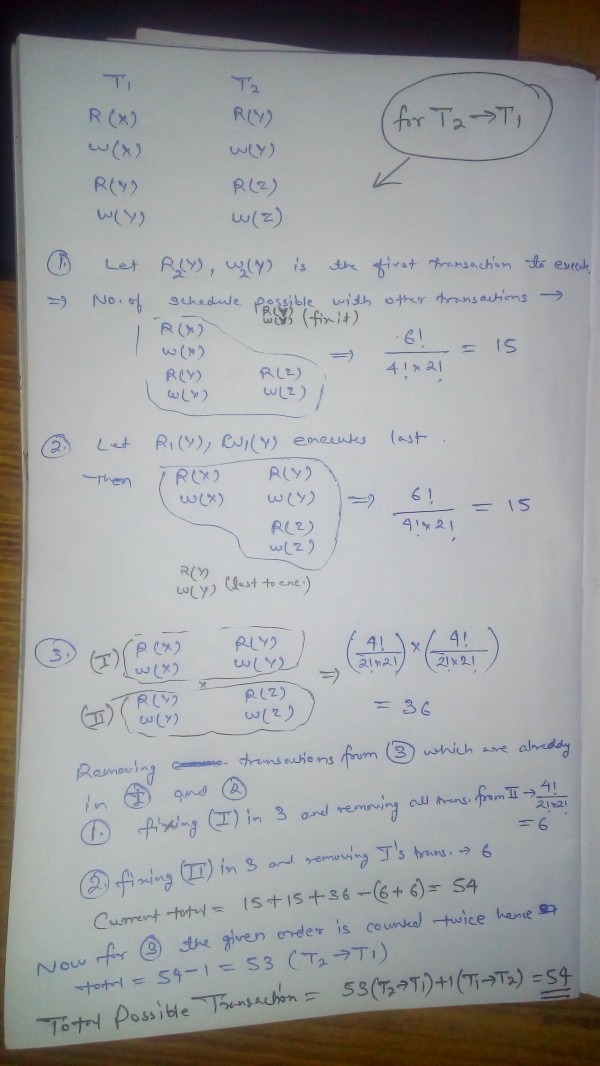 T₁ T₂
R(X) R(Y)
W(X) W(Y)
R(Y) R(Z)
W(Y) W(Z)
for T₂→T₁
①. Let R₂(Y), W₂(Y) is the first transaction to execute
⇒ No. of schedule possible with other transactions →
R(Y)
W(Y) (fix it)
R(X)
W(X)
R(Y) R(Z)
W(Y) W(Z)
⇒ 6!/(4!×2!) = 15
②. Let R₁(Y), W₁(Y) executes last.
Then R(X) R(Y)
W(X) W(Y)
R(Z)
W(Z)
⇒ 6!/(4!×2!) = 15
R(Y)
W(Y) (last to exe.)
③. (I) R(X) R(Y)
W(X) W(Y)
×
(II) R(Y) R(Z)
W(Y) W(Z)
⇒ (4!/(2!×2!)) × (4!/(2!×2!))
= 36
Removing transactions from ③ which are already
in ① and ②
①. fixing (I) in 3 and removing all trans. from II → 4!/(2!×2!)
= 6
②. fixing (II) in 3 and removing I's trans. → 6
Current total = 15+15+36-(6+6) = 54
Now for ③ the given order is counted twice hence
total = 54-1 = 53 (T₂→T₁)
Total Possible Transaction = 53(T₂→T₁)+1(T₁→T₂) = 54